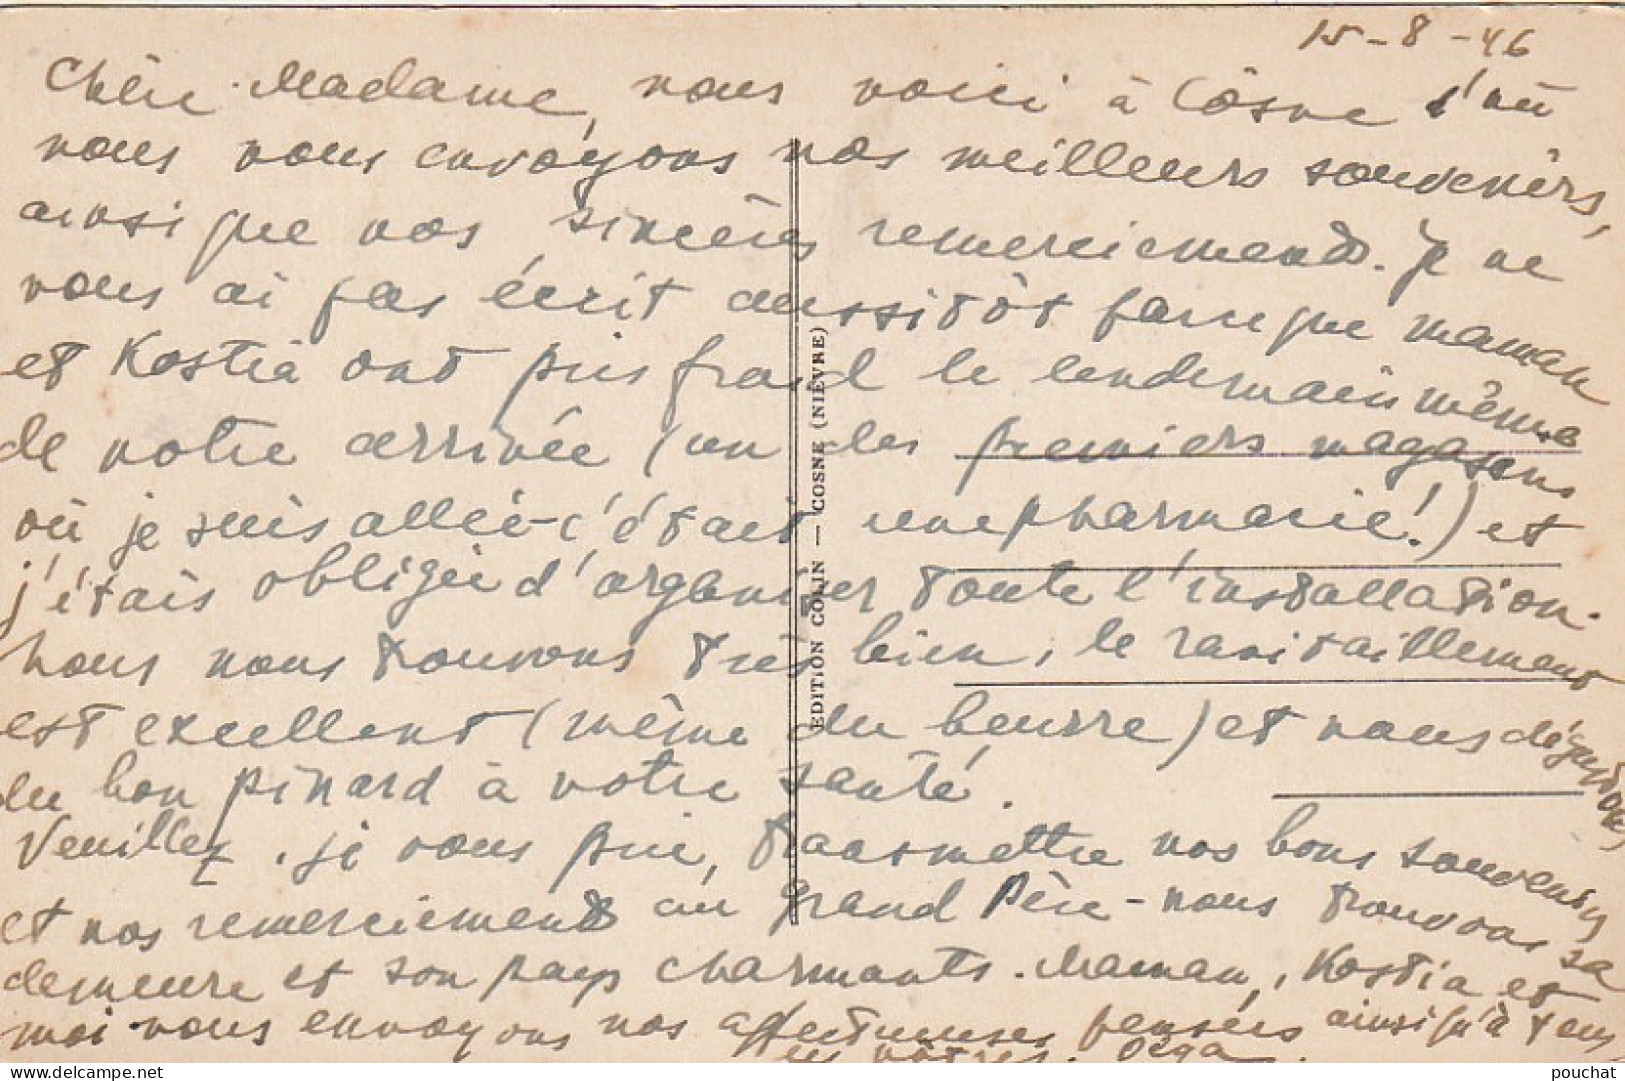 15-8-46
Chère Madame, nous voici à Cosne d'où
nous vous envoyons nos meilleurs souvenirs,
ainsi que nos sincères remerciements. Je ne
vous ai pas écrit aussitôt parce que maman
et Kostia ont pris froid le lendemain même
de notre arrivée (un des premiers magasins
où je suis allée - c'était une pharmacie!) et
j'étais obligée d'organiser toute l'installation.
Nous nous trouvons très bien, le ravitaillement
est excellent (même du beurre) et nous dégustons
du bon pinard à votre santé.
Veuillez, je vous prie, transmettre nos bons souvenirs
et nos remerciements au grand Père - nous trouvons sa
demeure et son pays charmants. Maman, Kostia et
moi vous envoyons nos affectueuses pensées ainsi qu'à tous
les vôtres. Olga
EDITION COLIN — COSNE (NIÈVRE)
delcampe.net
pouchat